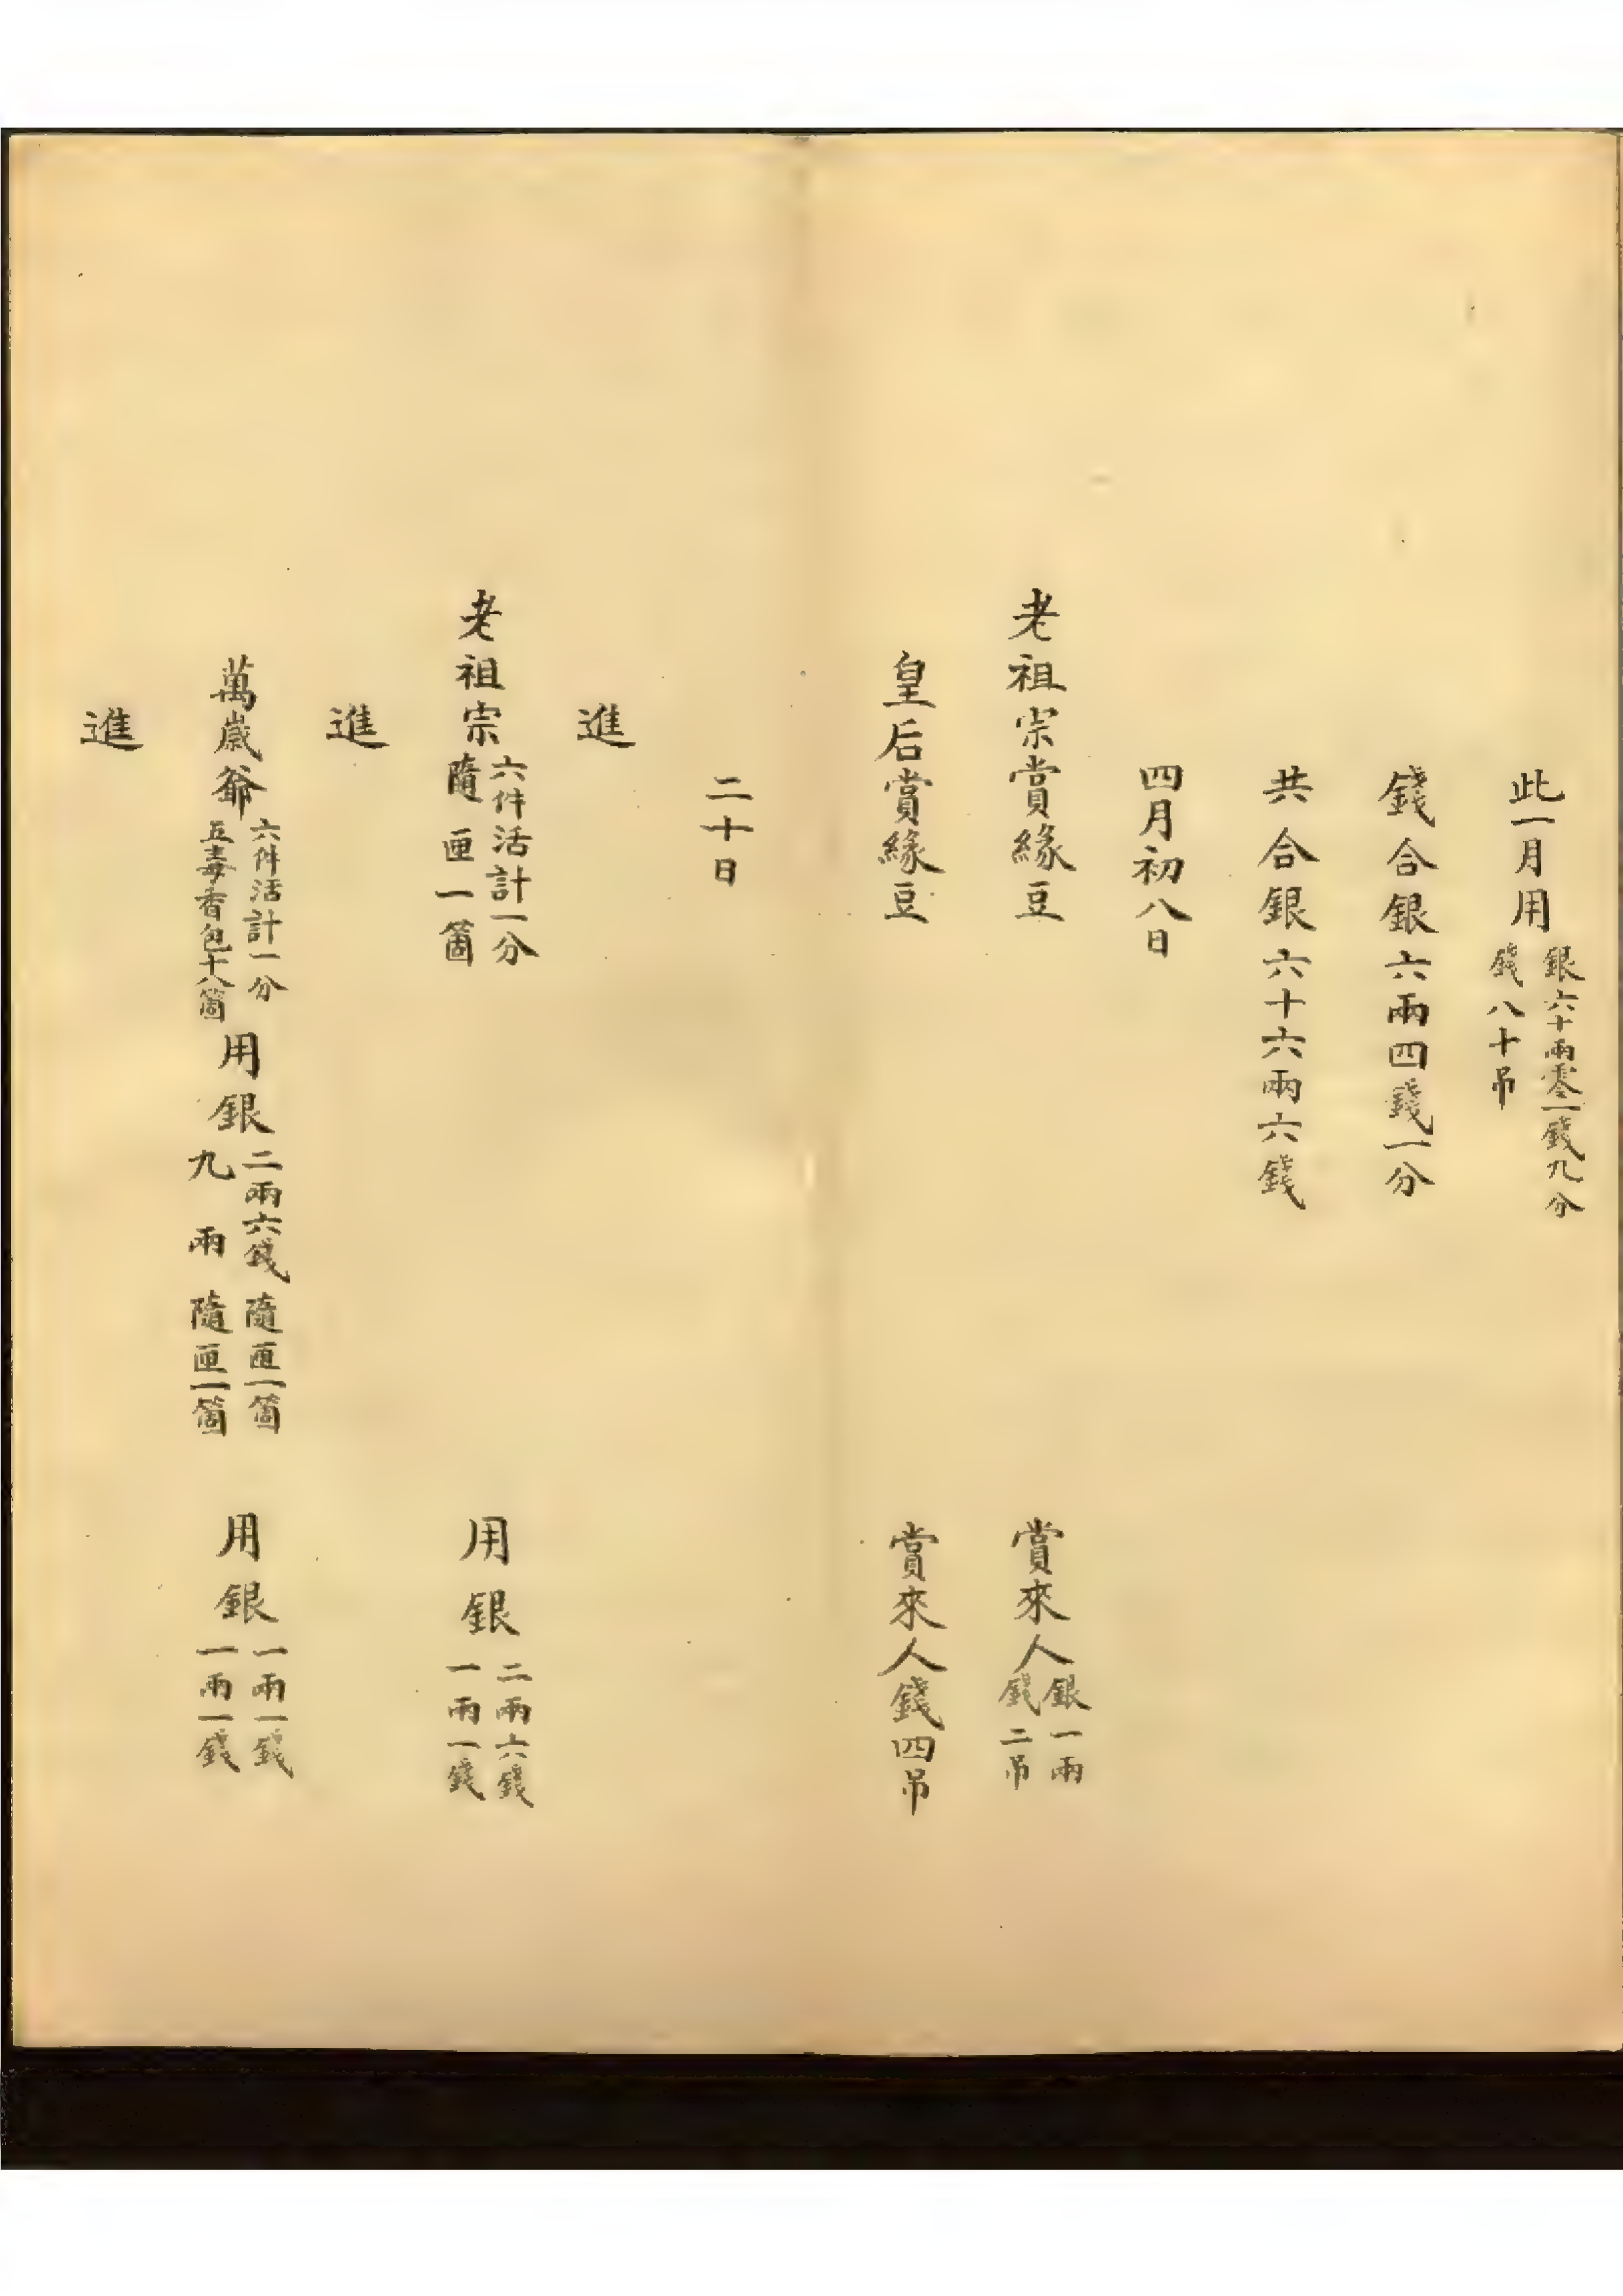 此一月用銀六十兩零一錢九分錢八十吊
錢合銀六兩四錢一分
共合銀六十六兩六錢
四月初八日
老祖宗賞緣豆 賞來人銀一兩錢二吊
皇后賞緣豆 賞來人錢四吊
二十日
進
老祖宗六件活計一分隨匣一箇 用銀二兩六錢一兩一錢
進
萬歲爺六件活計一分五毒香包十八箇用銀二兩六錢隨匣一箇九兩隨匣一箇 用銀一兩一錢一兩一錢
進